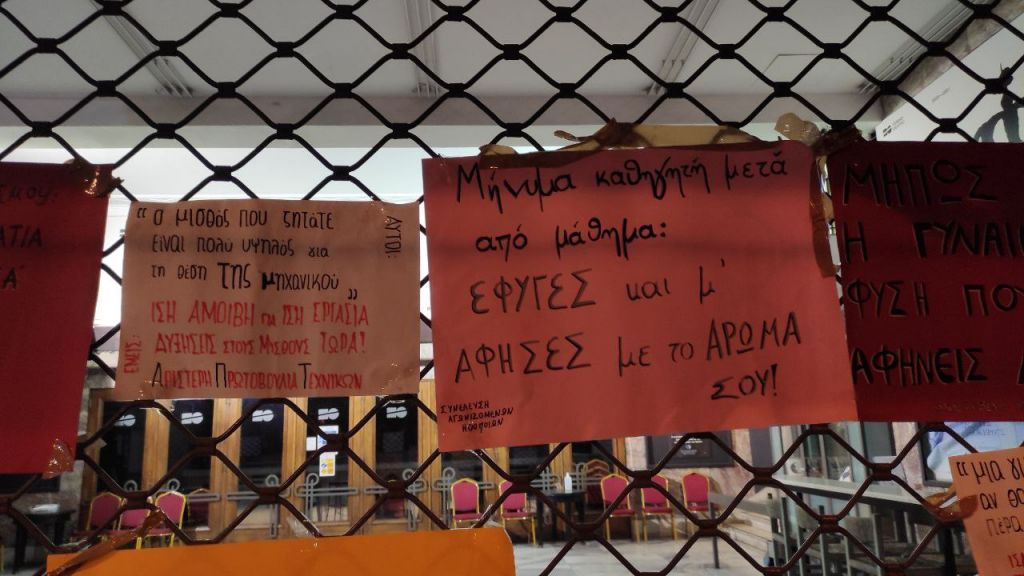 ΑΥΤΟΙ:
"Ο ΜΙΣΘΟΣ ΠΟΥ ΖΗΤΑΤΕ
ΕΙΝΑΙ ΠΟΛΥ ΥΨΗΛΟΣ για
τη θέση ΤΗΣ μηχανικού"
ΕΜΕΙΣ:
ΙΣΗ ΑΜΟΙΒΗ για ΙΣΗ ΕΡΓΑΣΙΑ
ΑΥΞΗΣΕΙΣ ΣΤΟΥΣ ΜΙΣΘΟΥΣ ΤΩΡΑ!
ΑΡΙΣΤΕΡΗ ΠΡΩΤΟΒΟΥΛΙΑ ΤΕΧΝΙΚΩΝ
Μήνυμα καθηγητή μετά
από μάθημα:
ΕΦΥΓΕΣ και μ'
ΑΦΗΣΕΣ με το ΑΡΩΜΑ
ΣΟΥ!
ΣΥΝΕΛΕΥΣΗ
ΑΓΩΝΙΖΟΜΕΝΩΝ
ΗΘΟΠΟΙΩΝ
ΜΗΠΩΣ
Η ΓΥΝΑΙ
ΦΥΣΗ ΠΟΥ
ΑΦΗΝΕΙΣ
"μια
αν
πέρα